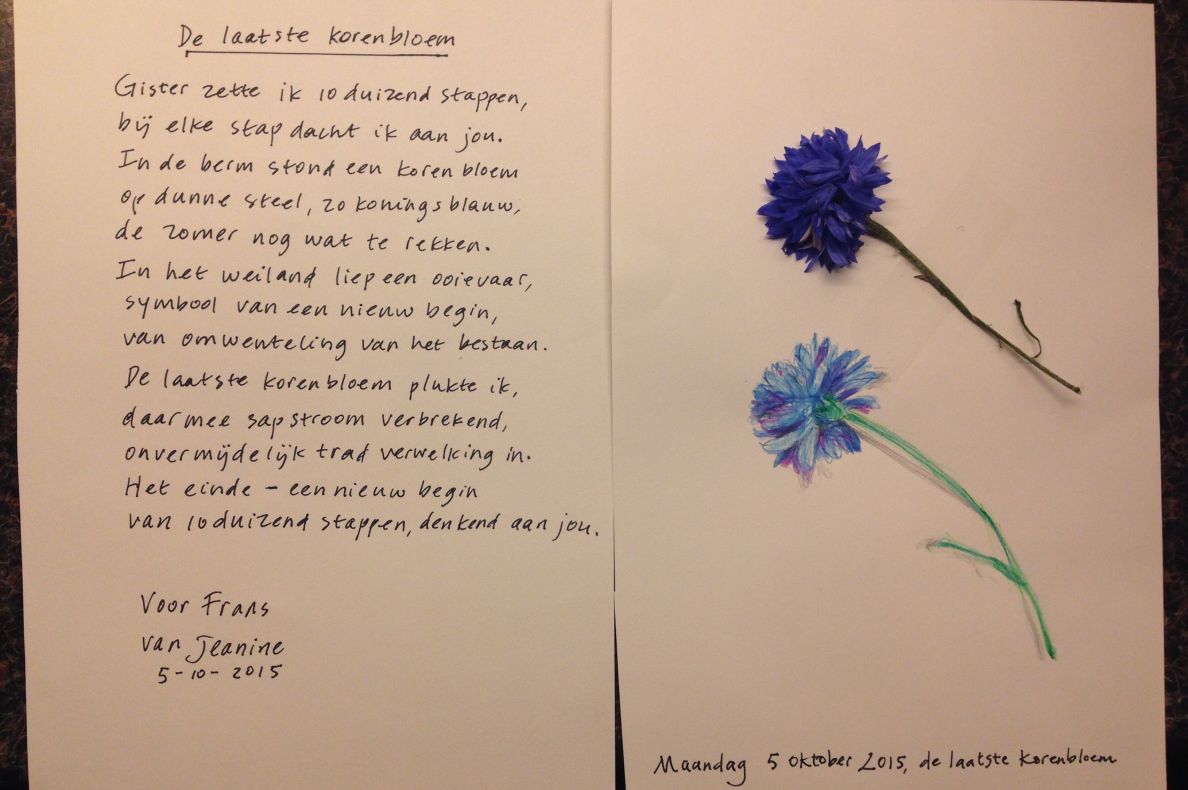 De laatste korenbloem
Gister zette ik 10 duizend stappen,
bij elke stap dacht ik aan jou.
In de berm stond een korenbloem
op dunne steel, zo koningsblauw,
de zomer nog wat te rekken.
In het weiland liep een ooievaar,
symbool van een nieuw begin,
van omwenteling van het bestaan.
De laatste korenbloem plukte ik,
daarmee sapstroom verbrekend,
onvermijdelijk trad verwelking in.
Het einde – een nieuw begin
van 10 duizend stappen, denkend aan jou.
Voor Frans
van Jeanine
5-10-2015
Maandag 5 oktober 2015, de laatste korenbloem